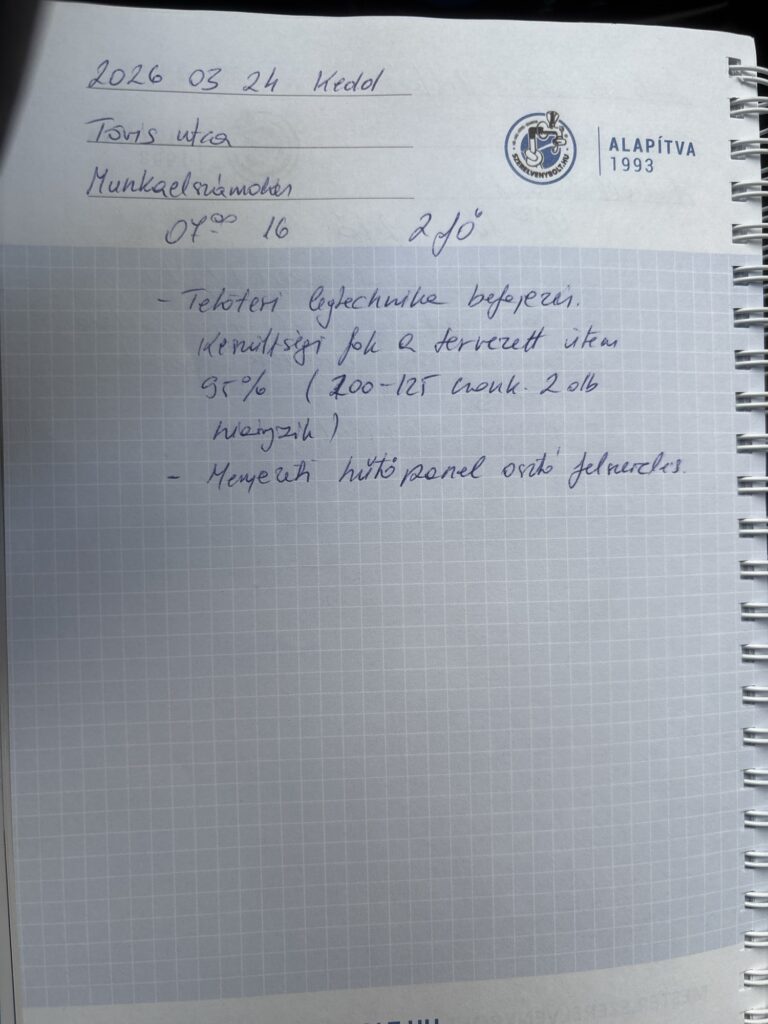 2026 03 24 Kedd
Tövis utca
SZERELVENYBOLT.HU
ALAPÍTVA
1993
Munkaelszámolás
07⁰⁰ 16 2 fő
- Tetőtéri légtechnika befejezés.
Készültségi fok a tervezett ütem
95% (200-125 csonk. 2 db
hiányzik)
- Menyezeti hűtőpanel osztó felszerelés.